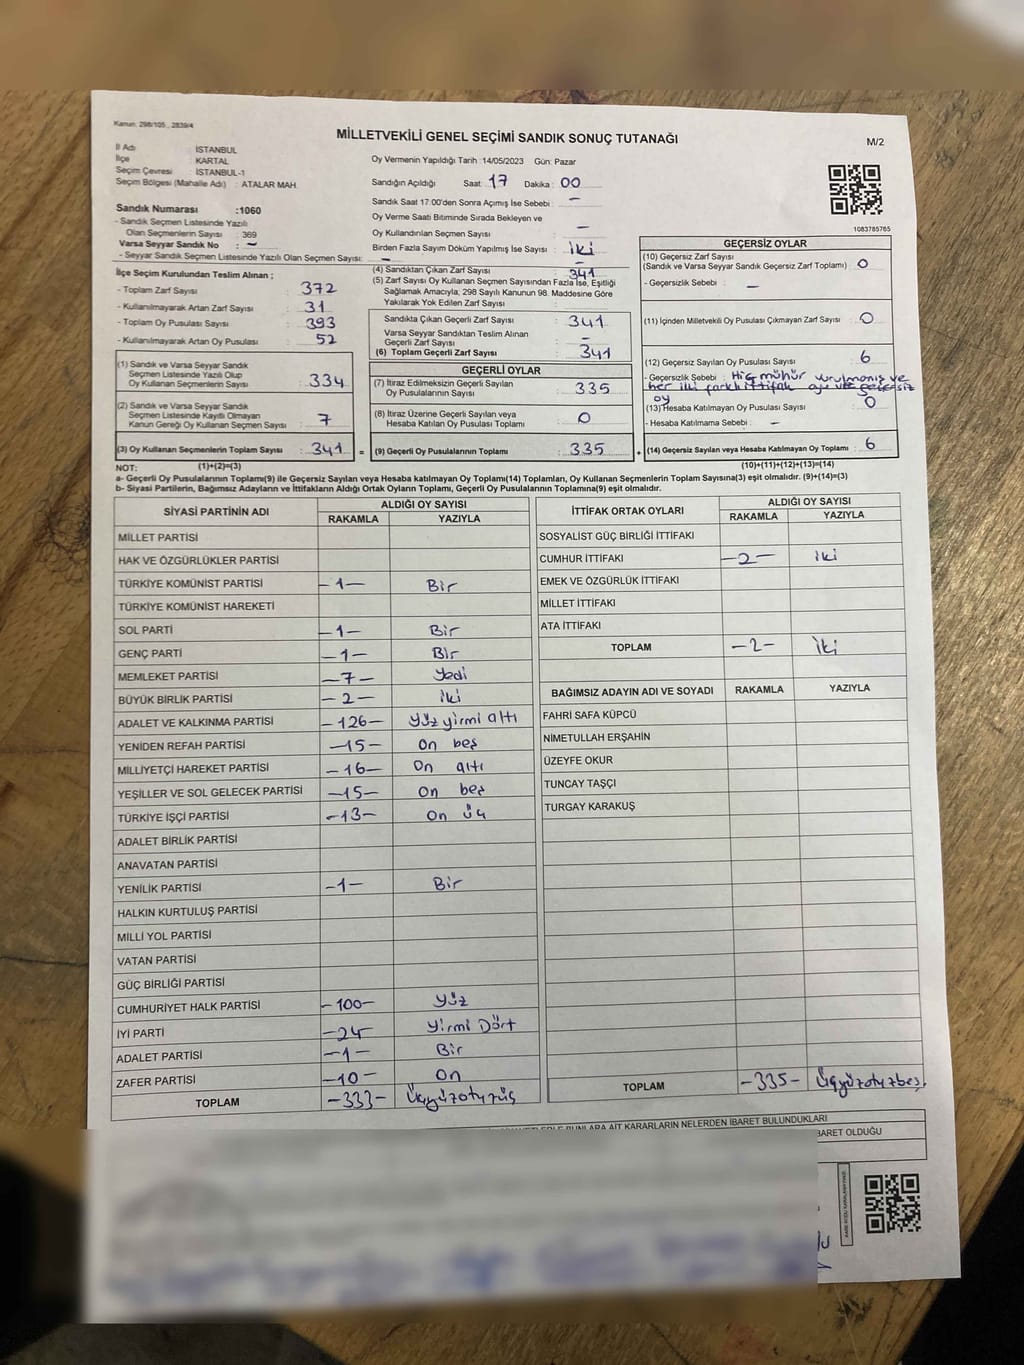 Kanun: 298/105 , 2839/4
MİLLETVEKİLİ GENEL SEÇİMİ SANDIK SONUÇ TUTANAĞI
M/2
İl Adı : İSTANBUL
İlçe : KARTAL
Seçim Çevresi : İSTANBUL-1
Seçim Bölgesi (Mahalle Adı) : ATALAR MAH.
Oy Vermenin Yapıldığı Tarih :14/05/2023 Gün: Pazar
Sandığın Açıldığı Saat : 17 Dakika : 00
Sandık Saat 17:00'den Sonra Açımış İse Sebebi : -
Oy Verme Saati Bitiminde Sırada Bekleyen ve
Oy Kullandırılan Seçmen Sayısı : -
Birden Fazla Sayım Döküm Yapılmış İse Sayısı : iki
1083785765
Sandık Numarası :1060
- Sandık Seçmen Listesinde Yazılı
Olan Seçmenlerin Sayısı : 369
Varsa Seyyar Sandık No : -
- Seyyar Sandık Seçmen Listesinde Yazılı Olan Seçmen Sayısı: -
İlçe Seçim Kurulundan Teslim Alınan ;
- Toplam Zarf Sayısı : 372
- Kullanılmayarak Artan Zarf Sayısı : 31
- Toplam Oy Pusulası Sayısı : 393
- Kullanılmayarak Artan Oy Pusulası : 52
(1) Sandık ve Varsa Seyyar Sandık
Seçmen Listesinde Yazılı Olup
Oy Kullanan Seçmenlerin Sayısı : 334
(2) Sandık ve Varsa Seyyar Sandık
Seçmen Listesinde Kayıtlı Olmayan
Kanun Gereği Oy Kullanan Seçmen Sayısı : 7
(3) Oy Kullanan Seçmenlerin Toplam Sayısı : 341
(1)+(2)=(3)
(4) Sandıktan Çıkan Zarf Sayısı : 341
(5) Zarf Sayısı Oy Kullanan Seçmen Sayısından Fazla İse, Eşitliği
Sağlamak Amacıyla; 298 Sayılı Kanunun 98. Maddesine Göre
Yakılarak Yok Edilen Zarf Sayısı : -
Sandıkta Çıkan Geçerli Zarf Sayısı : 341
Varsa Seyyar Sandıktan Teslim Alınan
Geçerli Zarf Sayısı : -
(6) Toplam Geçerli Zarf Sayısı : 341
GEÇERLİ OYLAR
(7) İtiraz Edilmeksizin Geçerli Sayılan
Oy Pusulasının Sayısı : 335
(8) İtiraz Üzerine Geçerli Sayılan veya
Hesaba Katılan Oy Pusulası Toplamı : 0
= (9) Geçerli Oy Pusulalarının Toplamı : 335 +
GEÇERSİZ OYLAR
(10) Geçersiz Zarf Sayısı
(Sandık ve Varsa Seyyar Sandık Geçersiz Zarf Toplamı) : 0
- Geçersizlik Sebebi : -
(11) İçinden Milletvekili Oy Pusulası Çıkmayan Zarf Sayısı : 0
(12) Geçersiz Sayılan Oy Pusulası Sayısı : 6
- Geçersizlik Sebebi : Hiç mühür vurulmamış ve
her iki farklı ittifak geçersiz
oy
(13) Hesaba Katılmayan Oy Pusulası Sayısı : 0
- Hesaba Katılmama Sebebi : -
(14) Geçersiz Sayılan veya Hesaba Katılmayan Oy Toplamı : 6
(10)+(11)+(12)+(13)=(14)
NOT:
a- Geçerli Oy Pusulalarının Toplamı(9) ile Geçersiz Sayılan veya Hesaba katılmayan Oy Toplamı(14) Toplamları, Oy Kullanan Seçmenlerin Toplam Sayısına(3) eşit olmalıdır. (9)+(14)=(3)
b- Siyasi Partilerin, Bağımsız Adayların ve İttifakların Aldığı Ortak Oyların Toplamı, Geçerli Oy Pusulalarının Toplamına(9) eşit olmalıdır.
SİYASİ PARTİNİN ADI ALDIĞI OY SAYISI
RAKAMLA YAZIYLA
MİLLET PARTİSİ
HAK VE ÖZGÜRLÜKLER PARTİSİ
TÜRKİYE KOMÜNİST PARTİSİ -1- Bir
TÜRKİYE KOMÜNİST HAREKETİ
SOL PARTİ -1- Bir
GENÇ PARTİ -1- Bir
MEMLEKET PARTİSİ -7- Yedi
BÜYÜK BİRLİK PARTİSİ -2- iki
ADALET VE KALKINMA PARTİSİ -126- Yüz yirmi altı
YENİDEN REFAH PARTİSİ -15- On beş
MİLLİYETÇİ HAREKET PARTİSİ -16- On altı
YEŞİLLER VE SOL GELECEK PARTİSİ -15- On beş
TÜRKİYE İŞÇİ PARTİSİ -13- On üç
ADALET BİRLİK PARTİSİ
ANAVATAN PARTİSİ
YENİLİK PARTİSİ -1- Bir
HALKIN KURTULUŞ PARTİSİ
MİLLİ YOL PARTİSİ
VATAN PARTİSİ
GÜÇ BİRLİĞİ PARTİSİ
CUMHURİYET HALK PARTİSİ -100- Yüz
İYİ PARTİ -24 Yirmi Dört
ADALET PARTİSİ -1- Bir
ZAFER PARTİSİ -10- On
TOPLAM -333- Üçyüzotuzüç
İTTİFAK ORTAK OYLARI ALDIĞI OY SAYISI
RAKAMLA YAZIYLA
SOSYALİST GÜÇ BİRLİĞİ İTTİFAKI
CUMHUR İTTİFAKI -2- iki
EMEK VE ÖZGÜRLÜK İTTİFAKI
MİLLET İTTİFAKI
ATA İTTİFAKI
TOPLAM -2- İki
BAĞIMSIZ ADAYIN ADI VE SOYADI RAKAMLA YAZIYLA
FAHRİ SAFA KÜPCÜ
NİMETULLAH ERŞAHİN
ÜZEYFE OKUR
TUNCAY TAŞÇI
TURGAY KARAKUŞ
TOPLAM -335- Üçyüzotuzbeş.
BUNLARA AİT KARARLARIN NELERDEN İBARET BULUNDUKLARI
İBARET OLDUĞU